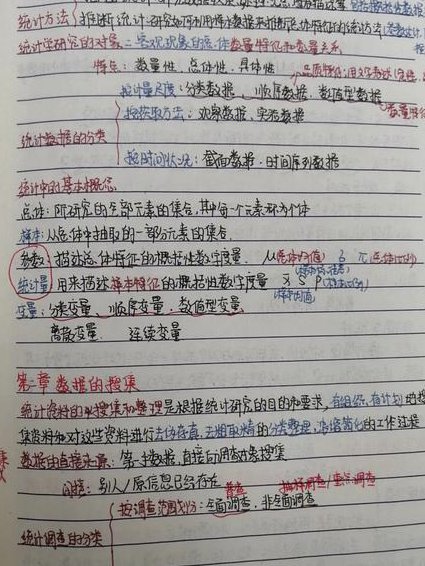 统计方法 推断统计:研究如何利用样本数据来推断总体特征的统计方法
统计学研究的对象:客观现象的总体数量特征和数量关系
特点:数量性、总体性、具体性
按计量尺度:分类数据、顺序数据、数值型数据
按获取方法:观察数据、实验数据
统计数据的分类
按时间状况:截面数据、时间序列数据
统计中的基本概念
总体:所研究的全部元素的集合,其中每一个元素称为个体
样本:从总体中抽取的一部分元素的集合
参数:描述总体特征的概括性数字度量. μ(总体均值) б π(总体比例)
统计量:用来描述样本特征的概括性数字度量 x̄ S P
(样本均值)
变量:分类变量、顺序变量、数值型变量、
离散变量 连续变量
第二章 数据的搜集
统计资料的搜集和整理是根据统计研究的目的和要求,有组织、有计划的搜
集资料和对这些资料进行去伪存真、去粗取精的分类整理、的工作过程
数据的直接来源:第一手数据,直接向调查对象搜集
间接:别人/原信息已经存在
普查 抽样调查/重点调查
按调查范围划分:全面调查、非全面调查
统计调查的分类